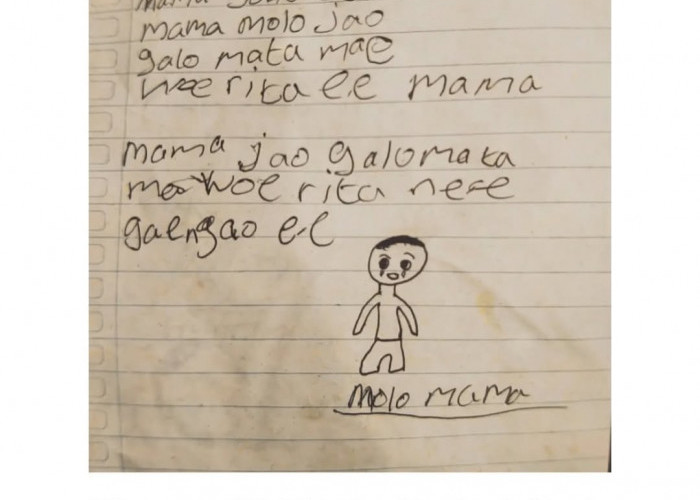 mama molo jao
galo mata mae
woe rita ee mama
mama jao galo mata
mae woe rita ne-e
gaengao e-e
molo mama